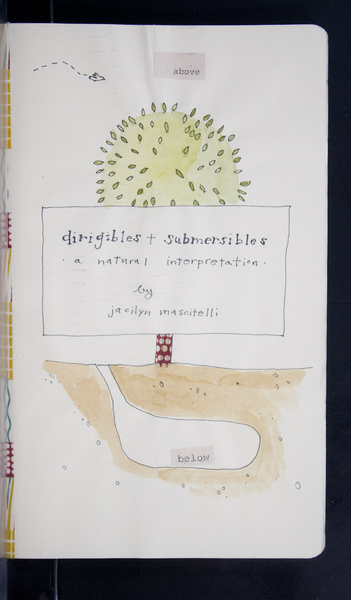 above
dirigibles + submersibles
· a natural interpretation ·
by
jacilyn mascitelli
below